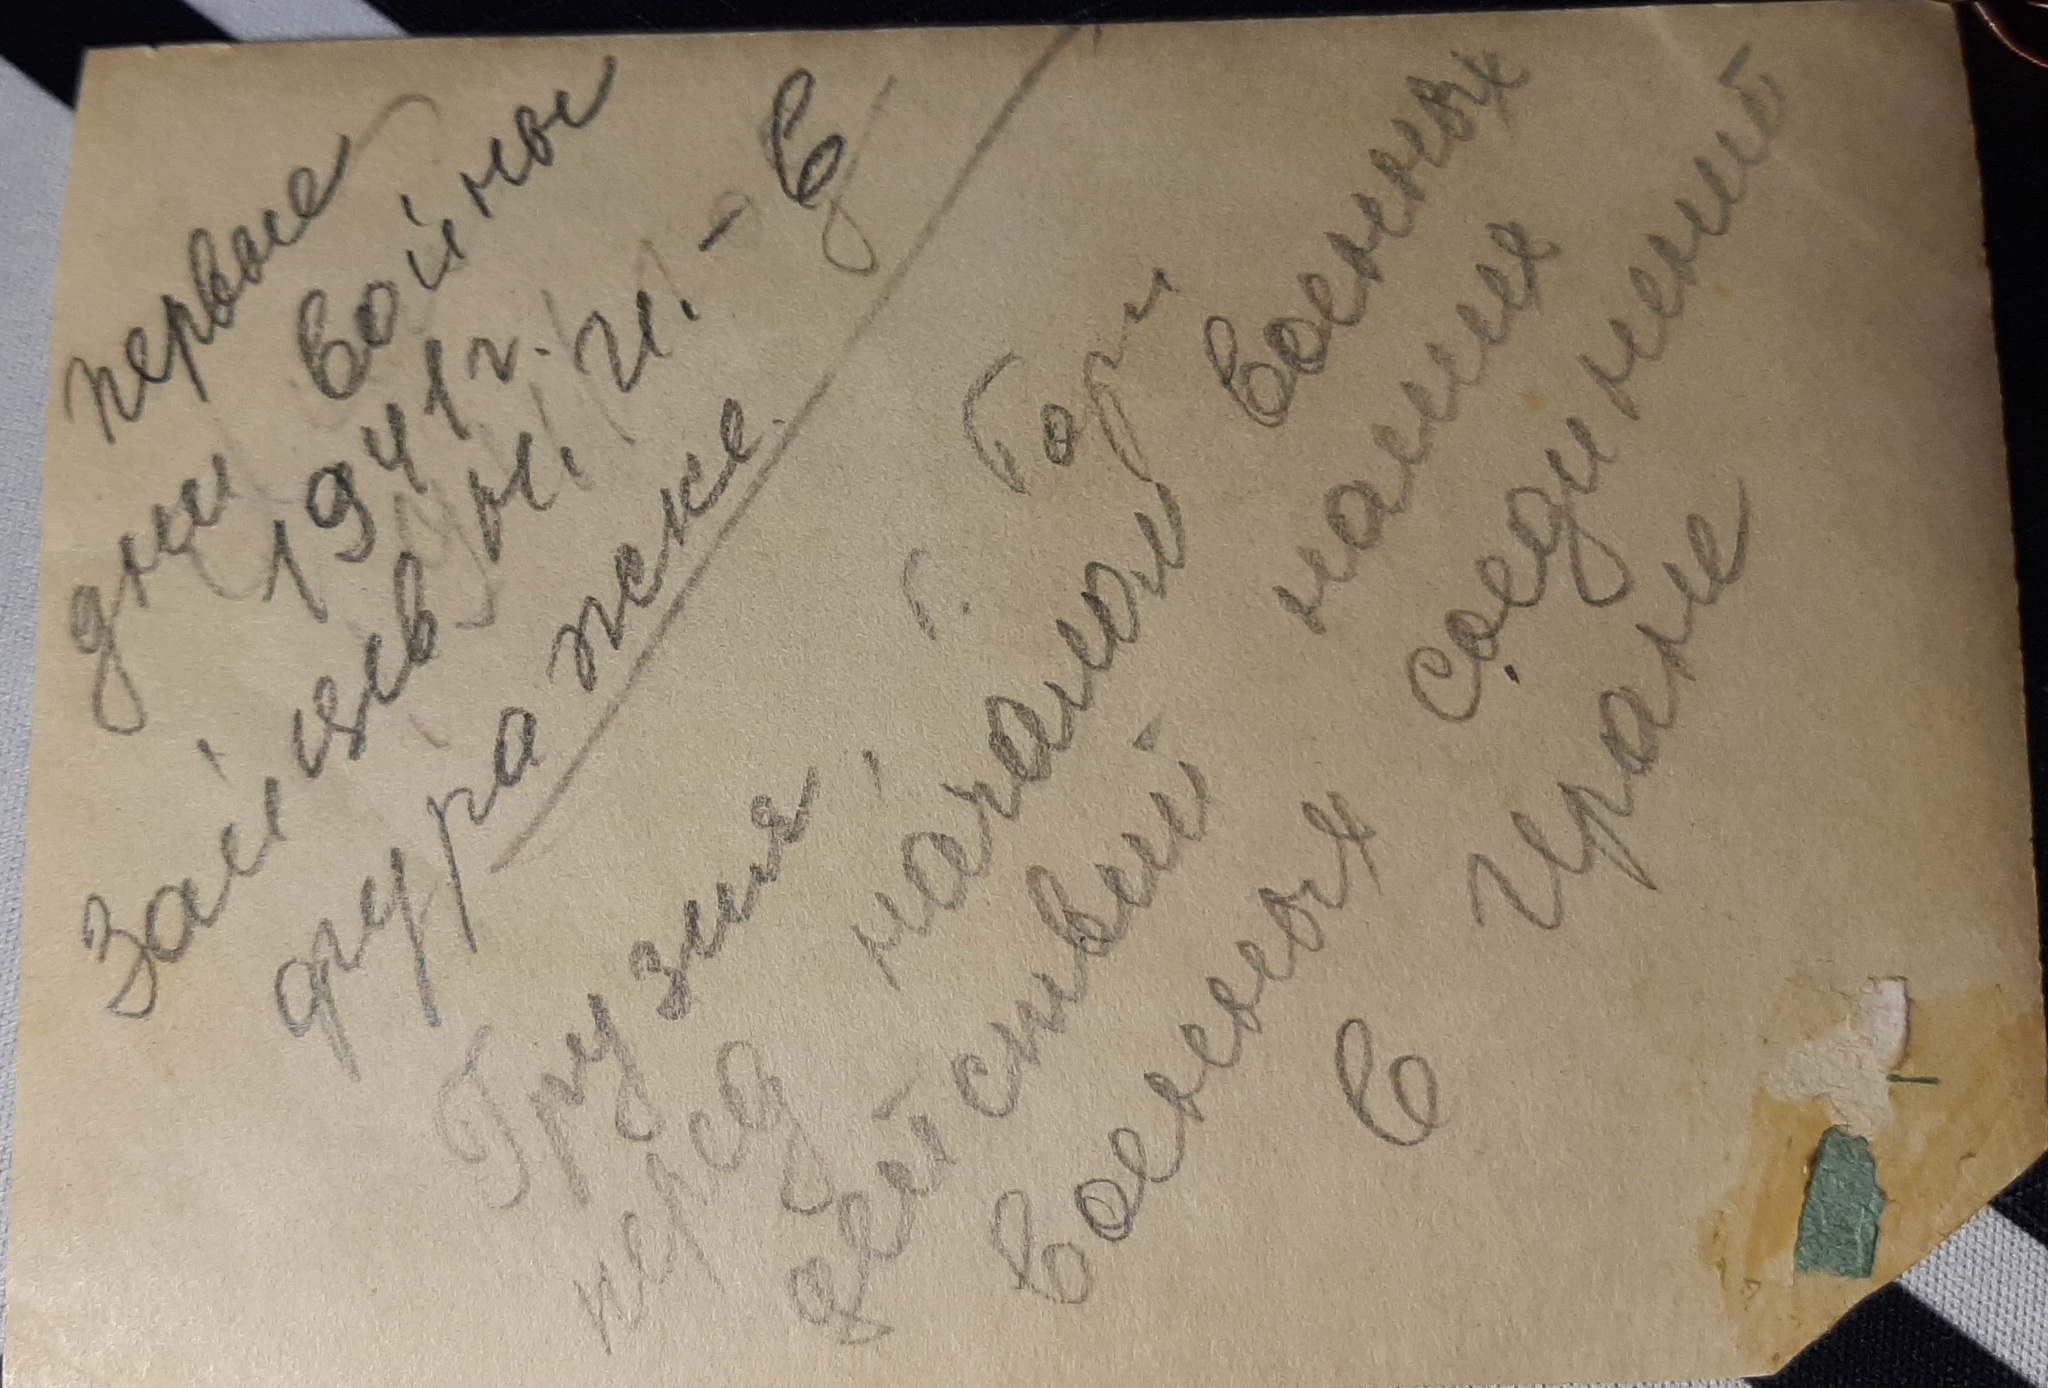 первые
дни войны
1941 г.
Зайцев Н. И. - в
фуражке.
Грузия, г. Гори
перед началом военных
действий наших
военных соединений
в Иране